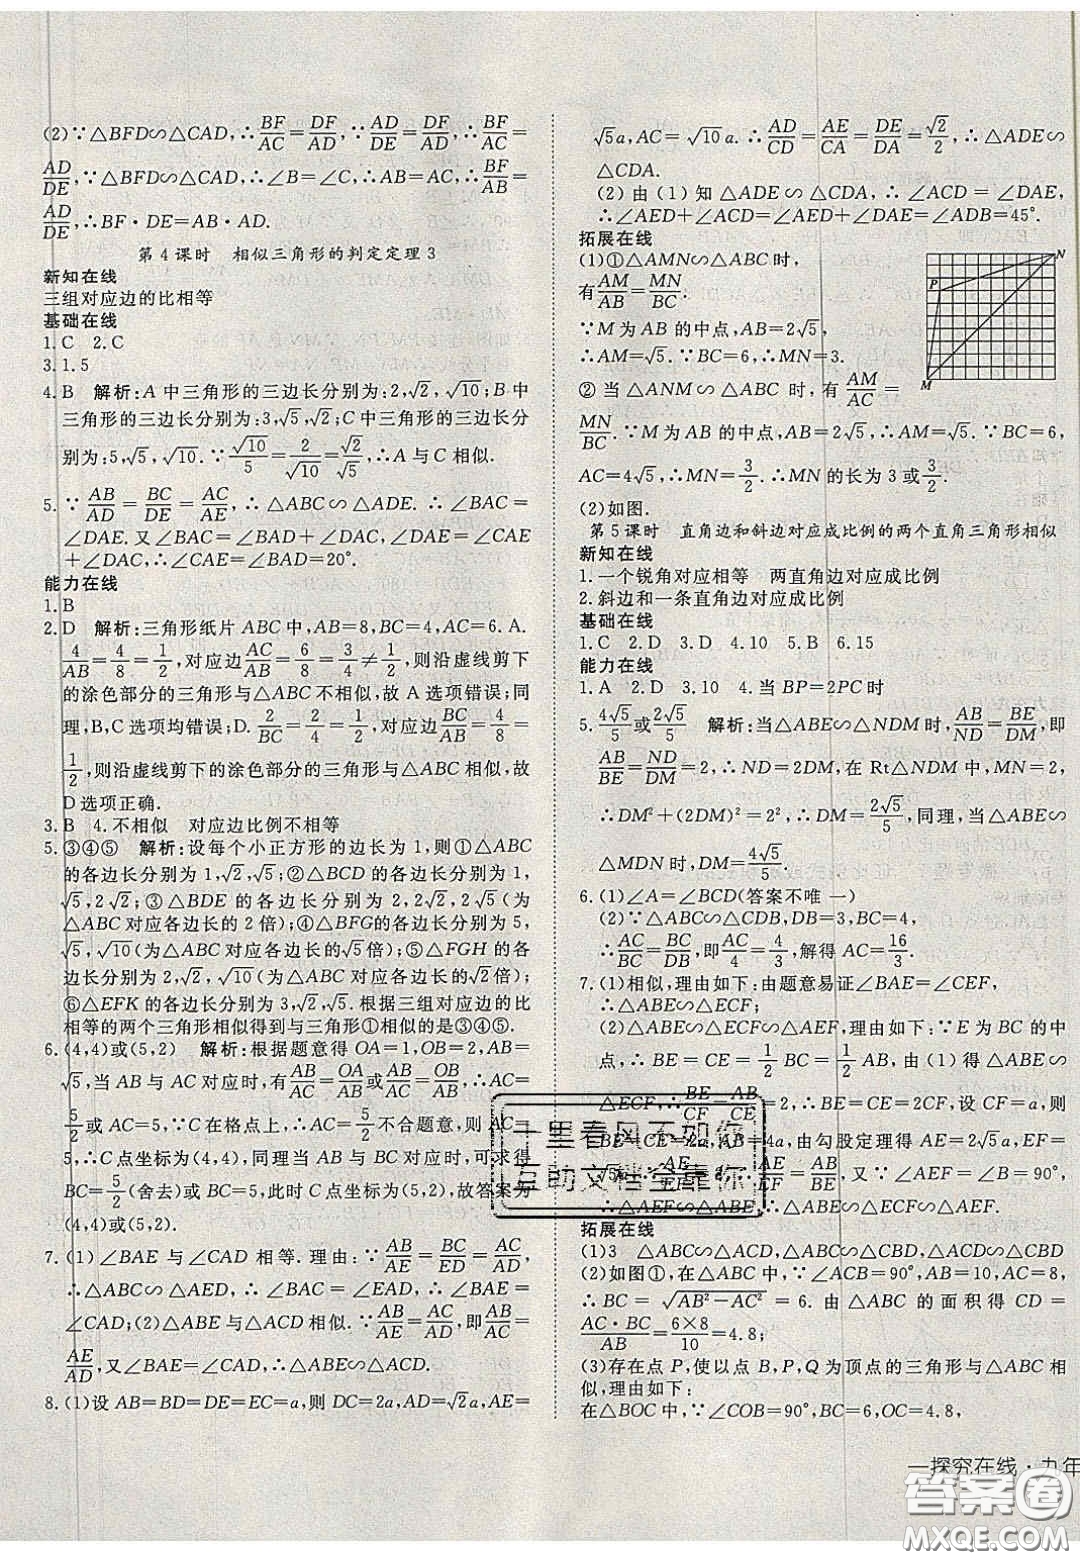 (2)∵△BFD∽△CAD,∴BF/AC=DF/AD,∵AD/DE=DF/AD,∴BF/AC=
AD/DE,∵△BFD∽△CAD,∴∠B=∠C,∴AB=AC,∴BF/AB=
AD/DE,∴BF·DE=AB·AD.
第4课时 相似三角形的判定定理3
新知在线
三组对应边的比相等
基础在线
1.C 2.C
3.1.5
4.B 解析:A中三角形的三边长分别为:2,√2,√10;B中
三角形的三边长分别为:3,√5,√2;C中三角形的三边长分
别为:5,√5,√10.∵√10/5=2/√10=√2/√5,∴A与C相似.
5.∵AB/AD=BC/DE=AC/AE,∴△ABC∽△ADE.∴∠BAC=
∠DAE.又∠BAC=∠BAD+∠DAC,∠DAE=∠CAE
+∠DAC,∴∠CAE=∠BAD=20°.
能力在线
1.B
2.D 解析:三角形纸片ABC中,AB=8,BC=4,AC=6.A.
4/AB=4/8=1/2,对应边AC/AB=6/8=3/4≠1/2,则沿虚线剪下
的涂色部分的三角形与△ABC不相似,故A选项错误;同
理,B,C选项均错误;D.2/BC=2/4=1/2,对应边BC/AB=4/8=
1/2,则沿虚线剪下的涂色部分的三角形与△ABC相似,故
D选项正确.
3.B 4.不相似 对应边比例不相等
5.③④⑤ 解析:设每个小正方形的边长为1,则①△ABC
的各边长分别为1,√2,√5;②△BCD的各边长分别为1,
√5,2√2;③△BDE的各边长分别为2,2√2,2√5(为
△ABC对应各边长的2倍);④△BFG的各边长分别为
√5,√10(为△ABC对应各边长的√5倍);⑤△FGH的各
边长分别为2,√2,√10(为△ABC对应各边长的√2倍);
⑥△EFK的各边长分别为3,√2,√5.根据三组对应边的比
相等的两个三角形相似得到与三角形①相似的是③④⑤.
6.(4,4)或(5,2) 解析:根据题意得OA=1,OB=2,AB=
√5,当AB与AC对应时,有AB/AC=OA/AB或AB/AC=OB/AB,∴AC=
5/2或AC=5,∵C在格点上,∴AC=5/2不合题意,则AC=
5,∴C点坐标为(4,4),同理当AB与BC对应时,可求得
BC=5/2(舍去)或BC=5,此时C点坐标为(5,2),故答案为
(4,4)或(5,2).
7.(1)∠BAE与∠CAD相等.理由:∵AB/AE=BC/ED=AC/AD,
∴△ABC∽△AED,∴∠BAC=∠EAD,∴∠BAE=
∠CAD;(2)△ABE与△ACD相似.∵AB/AE=AC/AD,即AB/AC=
AE/AD,又∠BAE=∠CAD,∴△ABE∽△ACD.
8.(1)设AB=BD=DE=EC=a,则DC=2a,AD=√2a,AE=
√5a,AC=√10a.∴AD/CD=AE/CA=DE/DA=√2/2,∴△ADE∽
△CDA.
(2)由(1)知△ADE∽△CDA,∴∠ACD=∠DAE,
∴∠AED+∠ACD=∠AED+∠DAE=∠ADB=45°.
拓展在线
(1)①△AMN∽△ABC时,
有AM/AB=MN/BC.
∵M为AB的中点,AB=2√5,
∴AM=√5.∵BC=6,∴MN=3.
②当△ANM∽△ABC时,有AM/AC=
MN/BC.∵M为AB的中点,AB=2√5,∴AM=√5.∵BC=6,
AC=4√5,∴MN=3/2.∴MN的长为3或3/2.
(2)如图.
P
N
M
第5课时 直角边和斜边对应成比例的两个直角三角形相似
新知在线
1.一个锐角对应相等 两直角边对应成比例
2.斜边和一条直角边对应成比例
基础在线
1.C 2.D 3.D 4.10 5.B 6.15
能力在线
1.A 2.D 3.10 4.当BP=2PC时
5.4√5/5或2√5/5 解析:当△ABE∽△NDM时,AB/ND=BE/DM,即
AB/BE=ND/DM=2,∴ND=2DM,在Rt△NDM中,MN=2,
∴DM²+(2DM)²=2²,∴DM=2√5/5,同理,当△ABE∽
△MDN时,DM=4√5/5.
6.(1)∠A=∠BCD(答案不唯一)
(2)∵△ABC∽△CDB,DB=3,BC=4,
∴AC/BC=BC/DB,即AC/4=4/3,解得AC=16/3.
7.(1)相似,理由如下:由题意易证∠BAE=∠CEF,
∴△ABE∽△ECF;
(2)△ABE∽△ECF∽△AEF,理由如下:∵E为BC的中
点,∴BE=CE=1/2BC=1/2AB,由(1)得△ABE∽
△ECF,∴BE/CF=AB/CE=2.∴BE=CE=2CF,设CF=a,则
BE=CE=2a,AB=4a,由勾股定理得AE=2√5a,EF=
√5a,
∠AEF=∠B=90°,
∴△AEF∽△ABE,∴△ABE∽△ECF∽△AEF.
拓展在线
(1)3 △ABC∽△ACD,△ABC∽△CBD,△ACD∽△CBD
(2)如图①,在△ABC中,∵∠ACB=90°,AB=10,AC=8,
∴BC=√AB²-AC²=6.由△ABC的面积得CD=
AC·BC/AB=6×8/10=4.8;
(3)存在点P,使以点B,P,Q为顶点的三角形与△ABC相
似,理由如下:
在△BOC中,∵∠COB=90°,BC=6,OC=4.8,
千里春风不如你
互助文档全靠你
一探究在线·九年
答案圈
MXQE.COM